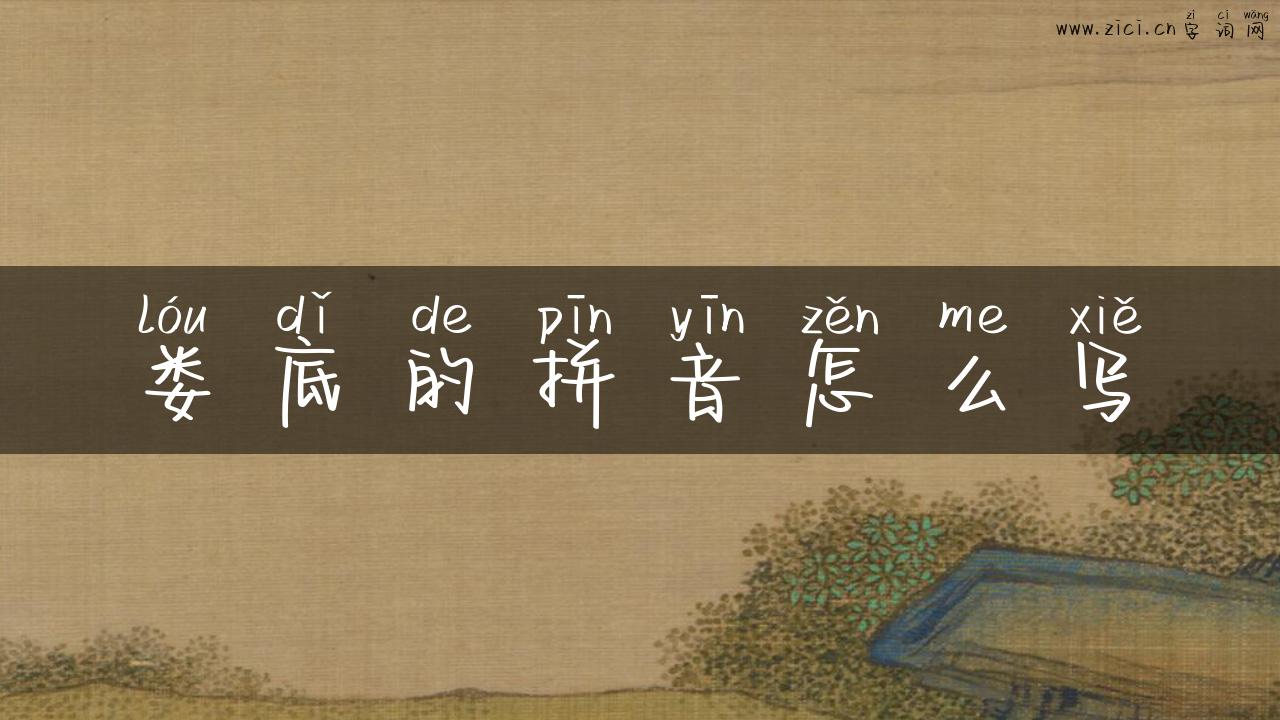 zì cí wǎng
www.zici.cn字词网
lóu dǐ de pīn yīn zěn me xiě
娄底的拼音怎么写